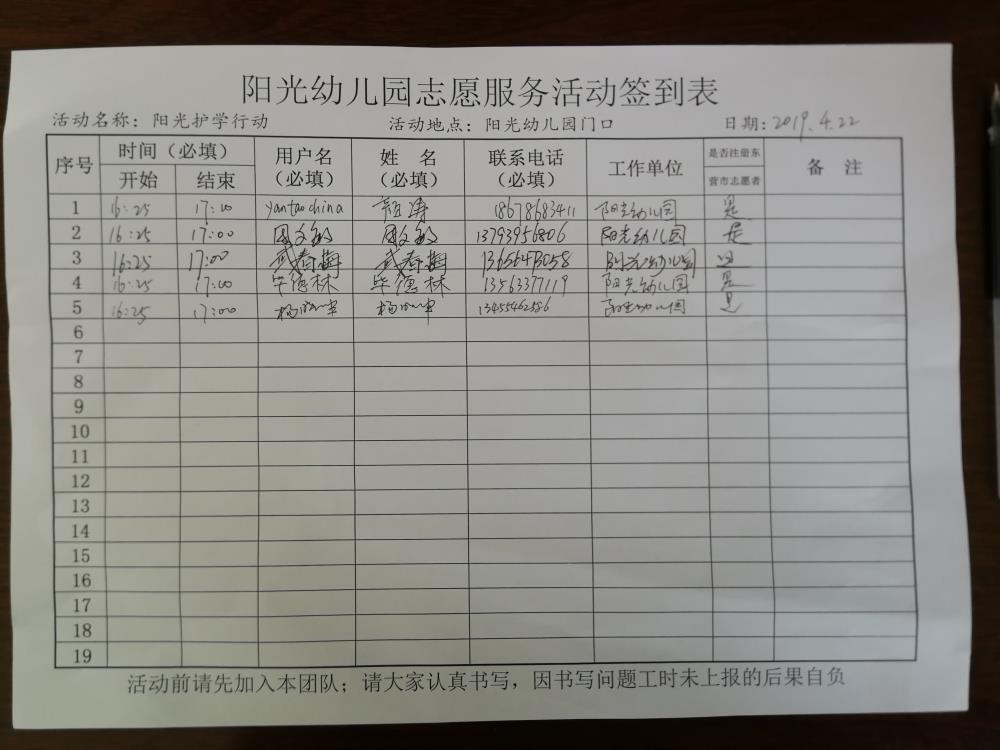 阳光幼儿园志愿服务活动签到表
活动名称：阳光护学行动 活动地点：阳光幼儿园门口 日期：2019.4.22
序号 时间（必填） 用户名（必填） 姓名（必填） 联系电话（必填） 工作单位 是否注册东营市志愿者 备注
开始 结束
1 16:25 17:00 yantaochina 颜涛 18678683411 阳光幼儿园 是
2 16:25 17:00 周文敏 周文敏 13793956806 阳光幼儿园 是
3 16:25 17:00 武春梅 武春梅 阳光幼儿园 是
4 16:25 17:00 毕德林 毕德林 13563377119 阳光幼儿园 是
5 16:25 17:00 13455462586 阳光幼儿园 是
6
7
8
9
10
11
12
13
14
15
16
17
18
19
活动前请先加入本团队；请大家认真书写，因书写问题工时未上报的后果自负